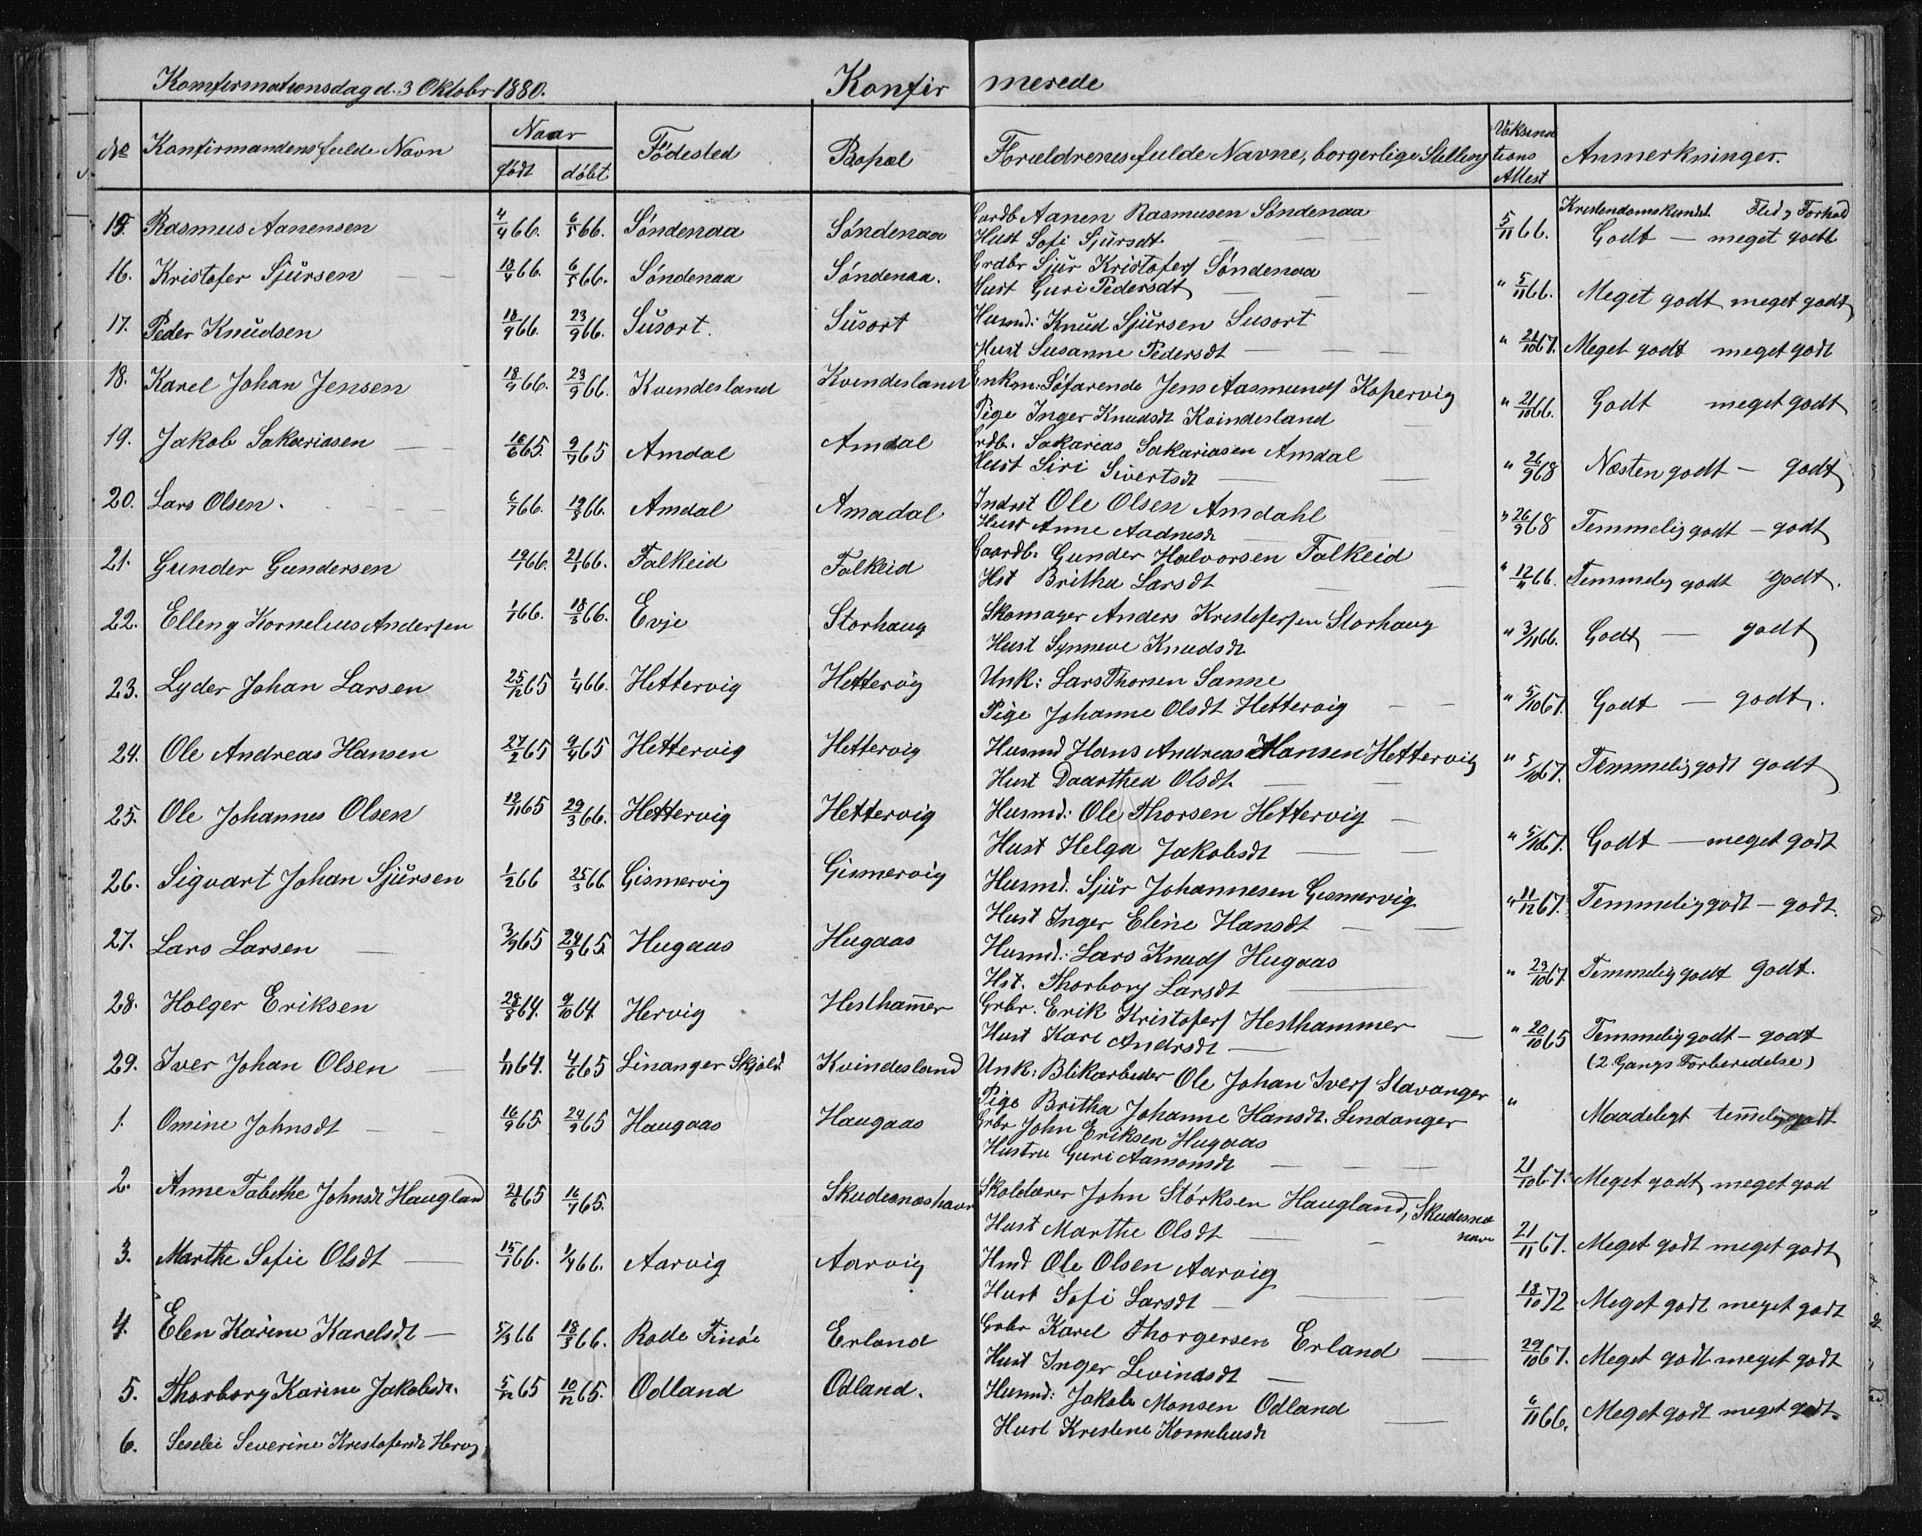 Komfirmationsdag d. 3 Oktobr 1880. Konfirmerede
No Konfirmandens fulde Navn Naar født døbt Fødested Bopæl Forældrenes fulde Navne, borgerlige Stilling Vaksinations Attest Anmerkninger.
Kristendomskundsk. Flid & Forhold
15. Rasmus Aanensen 4/4 66. 6/5 66. Søndenaa Søndenaa Gardb Aanen Rasmusen Søndenaa 5/11 66. Godt — meget godt
Hust Sofi Sjursdt — — —
16. Kristofer Sjursen — — 18/4 66. 6/5 66. Søndenaa Søndenaa. Grdbr Sjur Kristofers Søndenaa " 5/11 66. Meget godt meget godt
Hust Guri Pedersdt — — —
17. Peder Knudsen 18/9 66. 23/9 66. Susort. Susort Husmd: Knud Sjursen Susort " 21/10 67. Meget godt meget godt
Hust Susanne Pedersdt — — —
18. Karel Johan Jensen 18/9 66. 23/9 66. Kvindesland Kvindesland Enkm: Søfarende Jens Aasmunds Kopervig " 21/10 66. Godt meget godt
Pige Inger Knudsdt Kvindesland
19. Jakob Sakariasen — 16/6 65. 9/7 65 Amdal Amdal Grdb. Sakarias Sakariasen Amdal " 26/9 68 Næsten godt — godt
Hust Siri Sivertsdt — —
20. Lars Olsen. — — 6/7 66. 19/8 66. Amdal Amadal Indrst Ole Olsen Amdahl " 26/9 68 Temmelig godt — godt
Hust Anne Aadnesdt —
21. Gunder Gundersen 19/ 66. 21/ 66. Falkeid Falkeid Gaardb. Gunder Halvorsen Falkeid " 12/11 66. Temmelig godt Godt.
Hst Britha Larsdt — —
22. Elleng Kornelius Andersen 1/ 66. 18/3 66. Evje Storhaug Skomager Anders Kristofersen Storhaug " 3/11 66. Godt — godt
Hust Synneve Knudsdt
23. Lyder Johan Larsen 25/12 65 1/4 66. Hettervig Hettervig Unk: Lars Thorsen Sanne " 5/10 67. Godt — godt.
Pige Johanne Olsdt Hettervig — —
24. Ole Andreas Hansen 27/2 65 9/4 65 Hettervig Hettervig Husmd Hans Andreas Hansen Hettervig " 5/10 67. Temmelig godt godt
Hust Daarthea Olsdt. — —
25. Ole Johannes Olsen 12/11 65 29/3 66. Hettervig Hettervig Husmd: Ole Thorsen Hettervig — " 5/10 67. Godt — meget godt
Hust Helga Jakobsdt — —
26. Sigvart Johan Sjursen 1/2 66 25/3 66 Gismervig Gismervig Husmd. Sjur Johannesen Gismervig " 11/12 67. Temmelig godt — godt
Hust Inger Eline Hansdt — —
27. Lars Larsen — 3/9 65 24/9 65. Hugaas Hugaas Husmd: Lars Knuds Hugaas " 23/10 67. Temmelig godt Godt.
Hst. Thorborg Larsdt —
28. Holger Eriksen 28/8 64. 9/10 64. Hervig Hesthammer Grbr. Erik Kristofers Hesthammer " 20/10 65 Temmelig godt — godt
Hust Kari Andrsdt — — (2 Gangs Forberedelse)
29. Iver Johan Olsen — 1/11 64. 4/6 65 Linanger Skjold. Kvindesland Unk: Blikarbeder Ole Johan Ivers Stavanger " Maadelegt temmelig godt
Pige Britha Johanne Hansdt. Lindanger
1. Omine Johnsdt — — 16/9 65. 24/9 65 Haugaas Haugaas Grbr John Eriksen Hugaas 21/10 67. Meget godt meget god
Hustru Guri Aamonsdt — — —
2. Anne Tabethe Johnsdt Haugland 24/6 65 16/7 65. Skudesneshavn Skolelærer John Størksen Haugland, Skudesnæshavn 21/11 67. Meget godt meget godt
Hust Marthe Olsdt — —
3. Marthe Sofie Olsdt — 15/1 66. 1/4 66. Aarvig Aarvig Hmd Ole Olsen Aarvig 18/10 72 Meget godt meget godt
Hust Sofi Larsdt — — —
4. Elen Karine Karelsdt — 5/3 66 18/3 66. Rode Finøe Erland Grbr Karel Thorgersen Erland — 29/10 67. Meget godt meget godt
Hust Inger Levindsdt —
5. Thorborg Karine Jakobsdt. 5/12 65 10/12 65. Odland Odland. Husmd: Jakob Monsen Odland 6/11 66. Meget godt meget godt
Hust Kristene Korneliusdt
6. Seselei Severine Kristofersdt Hervig